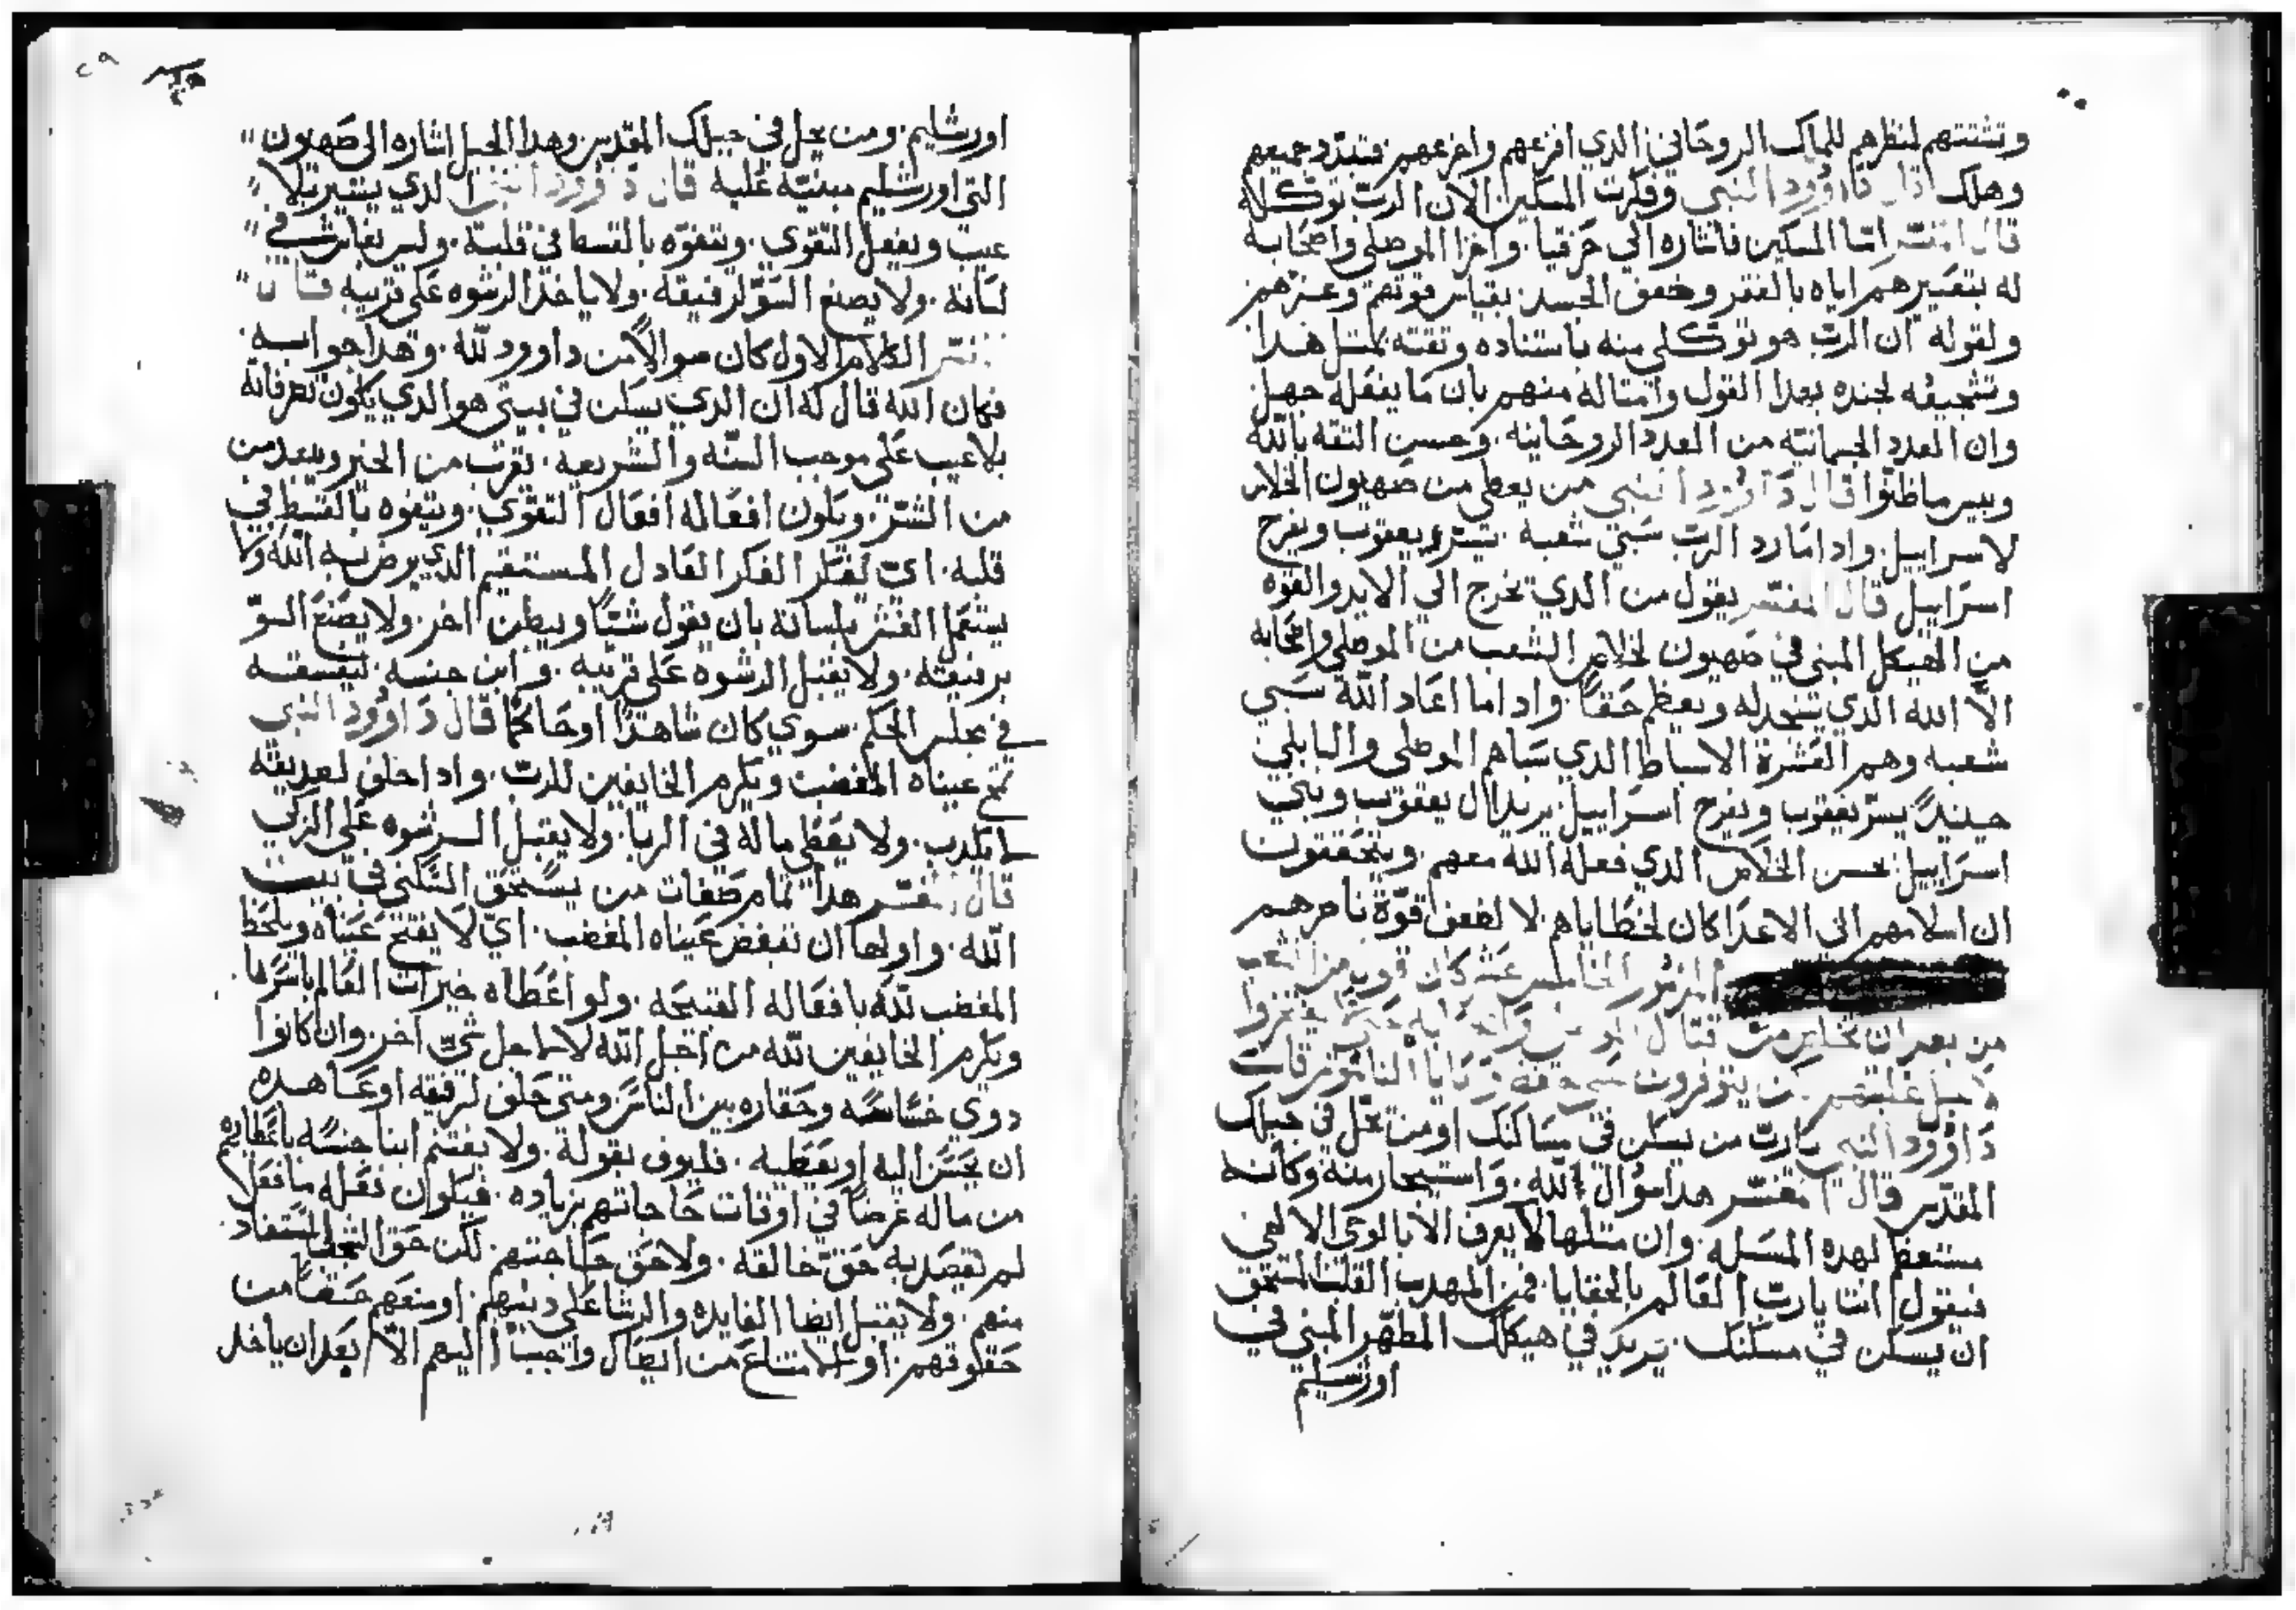 وتشتتهم لنظرهم للملاك الروحاني الذي افزعهم وازعجهم فتبدد جميعهم
وهلك قال داوود النبي وفكرت المسكين الان الرب توكله
قال المفسر اما المسكين فاشاره الي حزقيا واخزا الموصلي واصحابه
له بتعييرهم اياه بالفقر وضعف الجسد بقياس قوتهم وعزهم
ولقوله ان الرب هو توكلي منه باستناده وثقته بمثل هدا
وتشجيعه لجنده بهدا القول وامتاله منهم بان ما يفعله جهل
وان العدد الجسمانيه من العدد الروحانيه وحسن التقه بالله
وبيس ماظنوا قال داوود النبي من يعطي من صهيون الخلاص
لاسراييل واداما رد الرب سبي شعبه يسر يعقوب ويفرح
اسراييل قال المفسر يقول من الذي يخرج الي الايد والقوه
من الهيكل المبني في صهيون لخلاص الشعب من الموصلي واصحابه
الا الله الذي ينجد له ويعظم حقا واداما اعاد الله سبي
شعبه وهم العشرة الاسباط الذي سباهم الموصلي والبابلي
حينيد يسر يعقوب ويفرح اسراييل يريد ال يعقوب وبني
اسراييل بحسن الخلاص الذي فعله الله معهم ويتحققون
ان اسلامهم الي الاعدا كان لخطاياهم لا لضعف قوة ناصرهم
المزمور الخامس عشر كان قوم من الشعب
من بعد ان
داوود النبي يارب من يسكن في مساكنك او من يحل في جبلك
المقدس قال المفسر هدا سؤال لله واستخبار منه وكانه
مستعظم لهده المسله وان متلها لا يعرف الا بالوحي الالهي
فيقول انت يارب العالم بالخفايا فمن المهدب القلب المستحق
ان يسكن في مسكنك يريد في هيكلك المطهر المبني في
اورشليم
اورشليم ومن يحل في جبلك المقدس وهدا الجبل اشاره الي صهيون
التي اورشليم مبنيه عليه قال داوود النبي الدي يسير بلا
عيب ويفعل التقوي ويتفوه بالقسط في قلبه وليس بغاش في
لسانه ولا يصنع السو لرفيقه ولا ياخد الرشوه علي قريبه قال
المفسر الكلام الاول كان سوالا من داوود لله وهدا جوابه
فكان الله قال له ان الدي يسكن في بيتي هو الدي يكون تصرفاته
بلا عيب علي موجب السنه والشريعه يقرب من الخير ويبعد من
من الشر ويكون افعاله افعال التقوي ويتفوه بالقسط في
قلبه اي يفكر الفكر العادل المستقيم الدي يرضي به الله ولا
يستعمل الغش بلسانه بان يقول شيا ويبطن اخر ولا يصنع السو
برفيقه ولا يقبل الرشوه علي قريبه وابن جنسه ليفسقه
في مجلس الحكم سوي كان شاهدا او حاكما قال داوود النبي
عيناه المغضب ويكرم الخايفين للرب وادا حلف لصديقه
لا يكدب ولا يعطي ماله في الربا ولا يقبل الرشوه علي الزكي
قال المفسر هدا تمام صفات من يستحق السكني في بيت
الله واولها ان تبغض عيناه المغضب اي لا يفتح عيناه ويلحظ
المغضب لله بافعاله القبيحه ولو اعطاه خيرات العالم باسرها
ويكرم الخايفين لله من اجل الله لا من اجل شي اخر وان كانوا
دوي خساسه وحقاره بين الناس ومتي حلف لرفيقه او عاهده
ان يحسن اليه او يعطيه فليوف بقوله ولا يغتنم ابنا جنسه باعطايهم
من ماله عرضا في اوقات حاجاتهم بزياده فيكون فعله ما فعل
لم يقصد به حق خالقه ولا حق حاجتهم لكن حق المستفاد
منهم ولا يقبل ايضا الفايده والرشا علي دينهم او منعهم حقا من
حقوقهم او الامتناع من ايصال واجب اليهم الا بعد ان ياخد